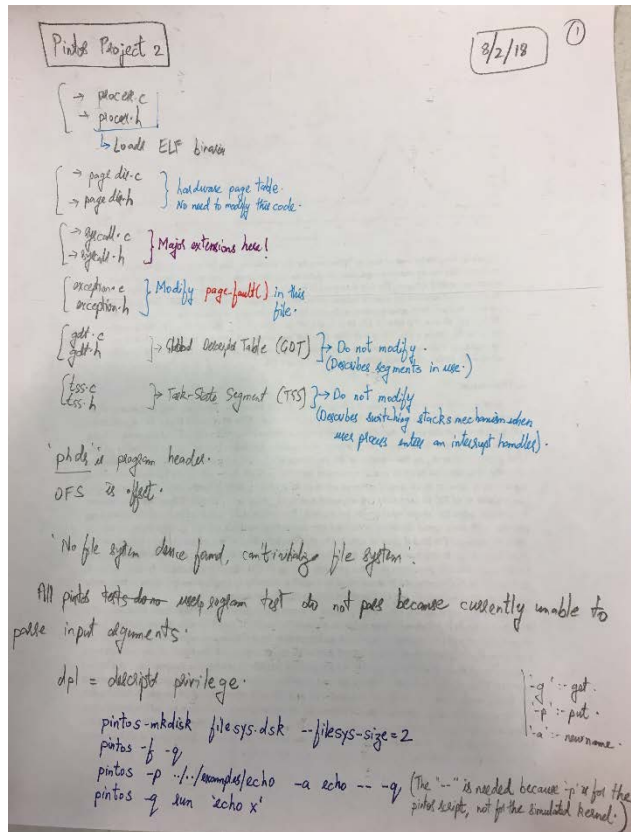 Pintos Project 2
8/2/18
1
→ process.c
→ process.h
↳ Loads ELF binaries
→ pagedir.c
→ pagedir.h
hardware page table.
No need to modify this code.
→ syscall.c
→ syscall.h
Major extensions here!
exception.c
exception.h
Modify page-fault() in this
file.
gdt.c
gdt.h
→ Global Descriptor Table (GDT)
→ Do not modify.
(Describes segments in use.)
tss.c
tss.h
→ Task-State Segment (TSS)
→ Do not modify
(Describes switching stacks mechanism when
user process enters an interrupt handler).
'phdr' is program header.
OFS is offset.
'No file system device found, can't initialize file system'.
All pintos tests do no userprogram test do not pass because currently unable to
parse input arguments.
dpl = descriptor privilege.
'-g' :- get.
'-p' :- put.
'-a' :- newname.
pintos-mkdisk filesys.dsk --filesys-size=2
pintos -f -q
pintos -p ../../examples/echo -a echo -- -q
(The "--" is needed because '-p' is for the
pintos script, not for the simulated kernel.)
pintos -q run 'echo x'